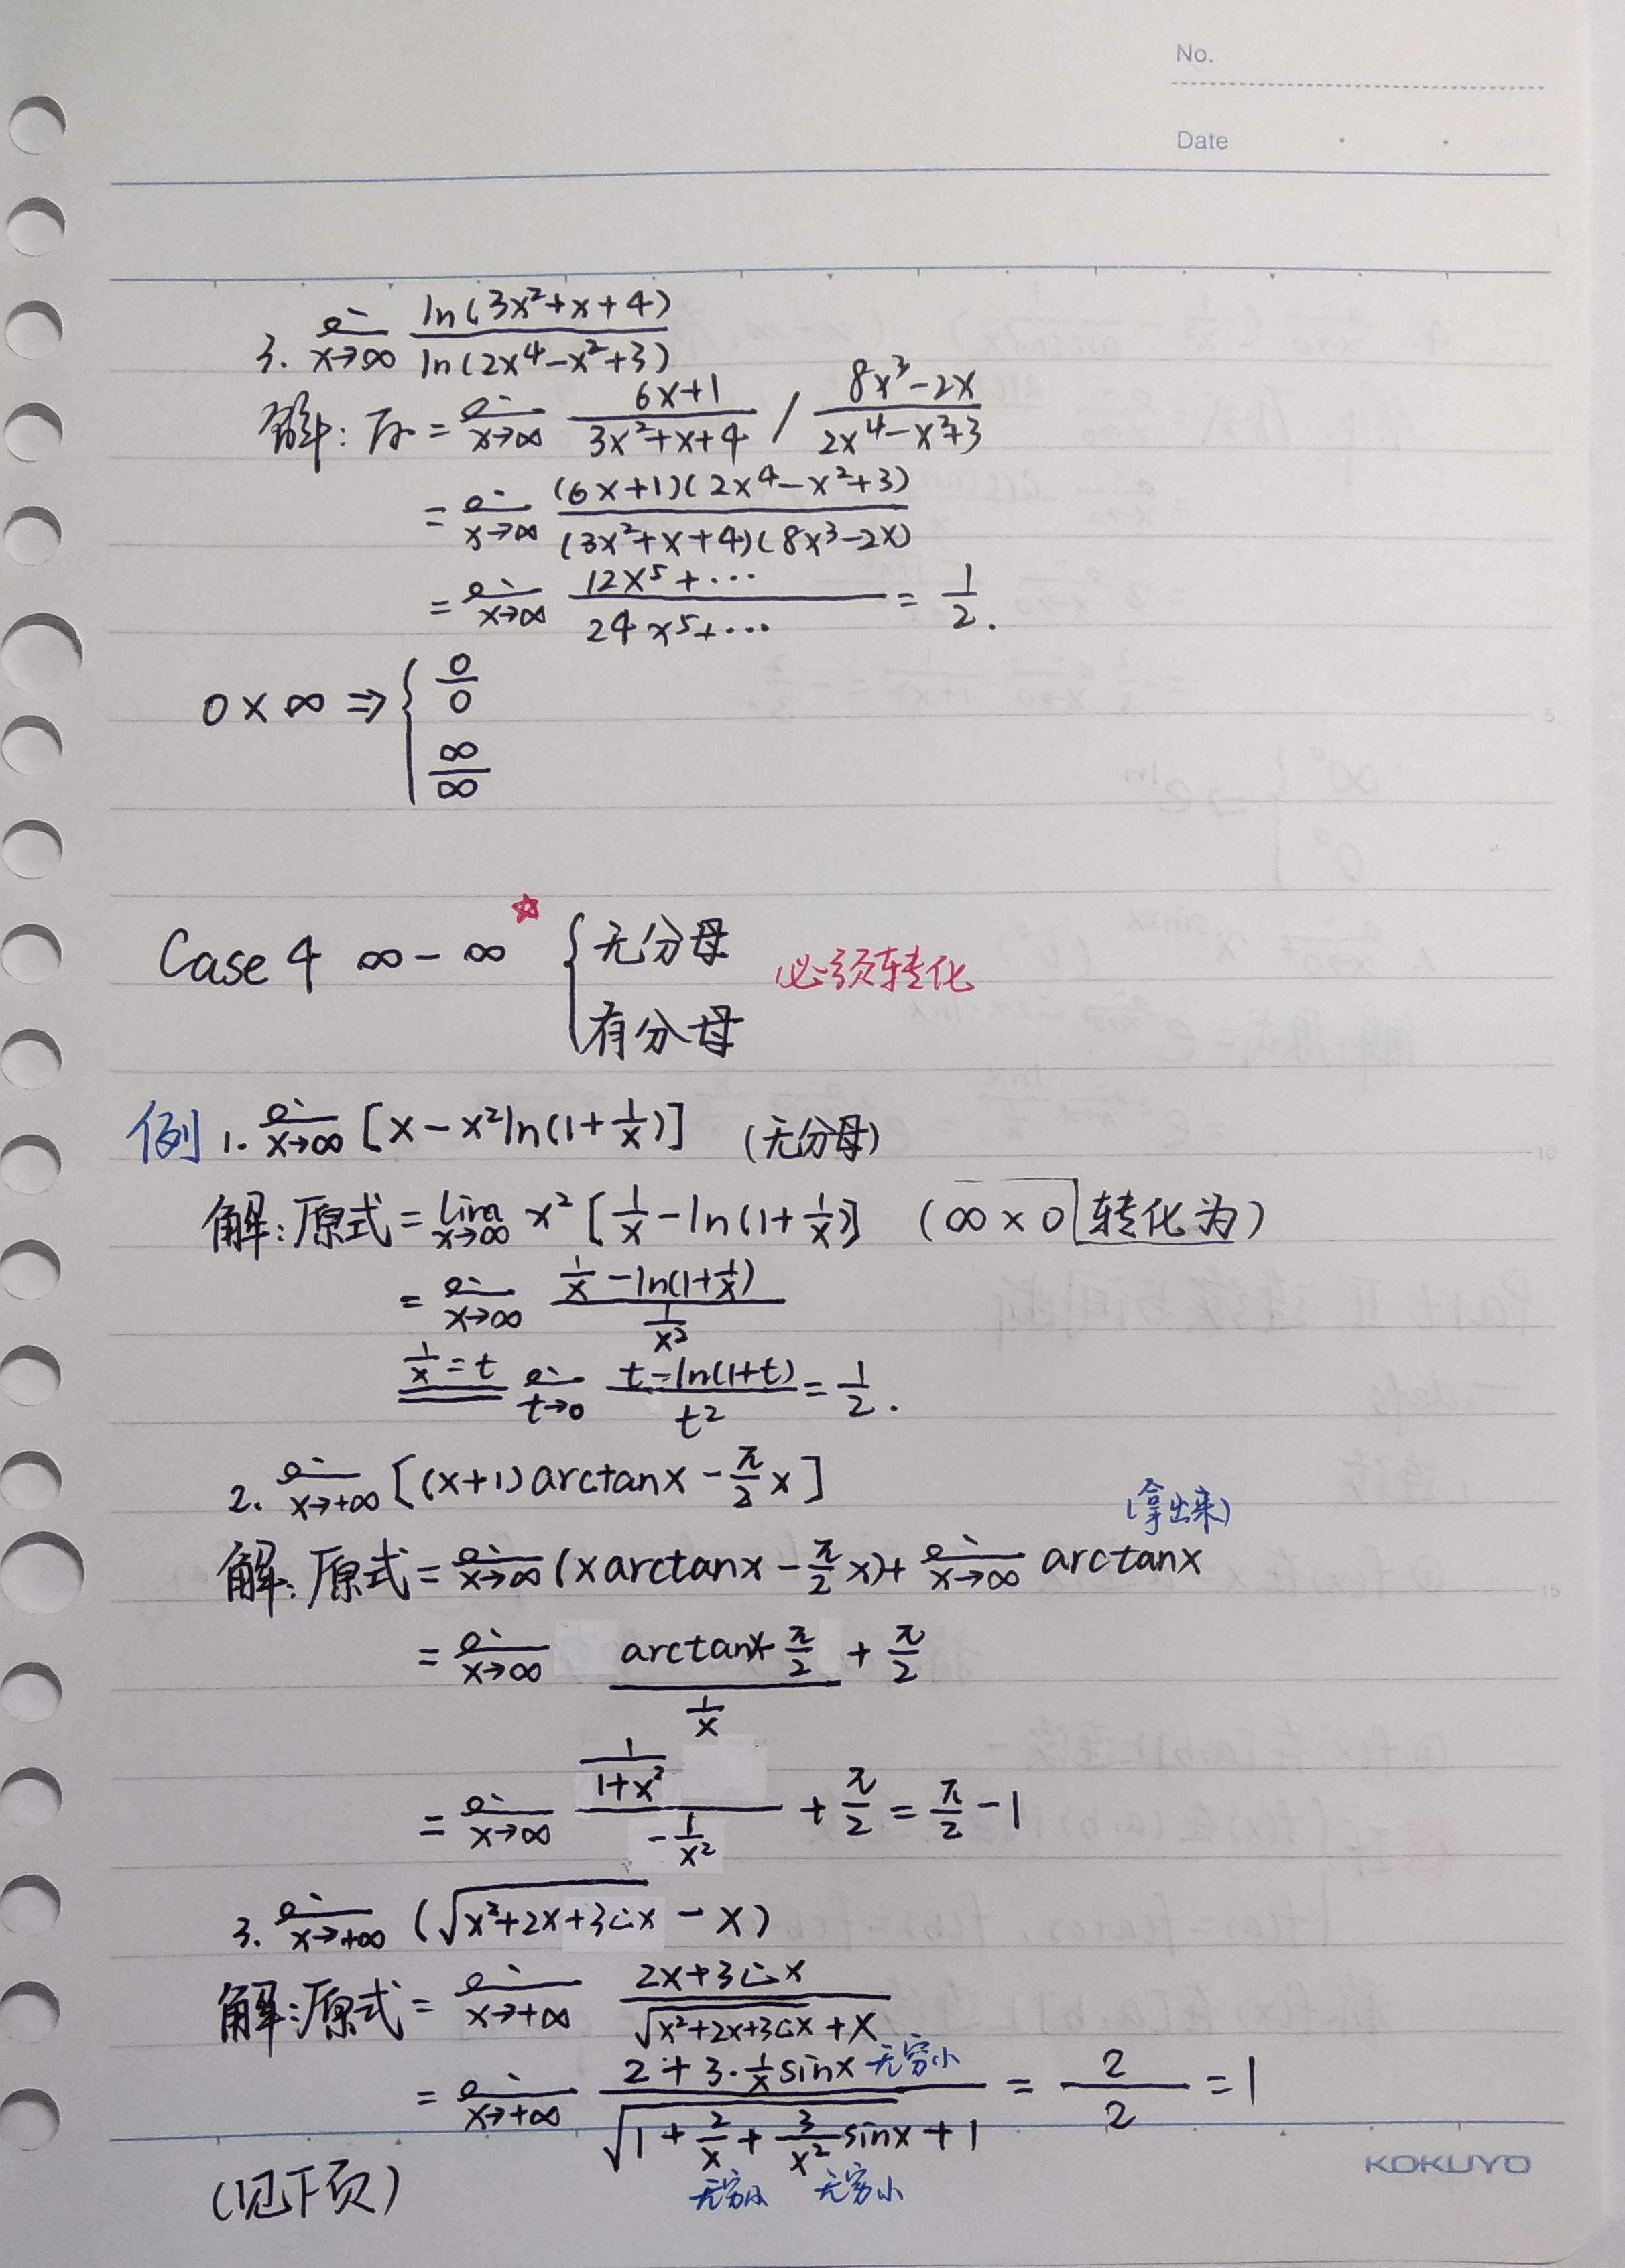 No.
Date
3. lim x→∞ ln(3x²+x+4) / ln(2x⁴-x²+3)
解: 原 = lim x→∞ (6x+1)/(3x²+x+4) / (8x³-2x)/(2x⁴-x²+3)
= lim x→∞ (6x+1)(2x⁴-x²+3) / (3x²+x+4)(8x³-2x)
= lim x→∞ (12x⁵+…)/(24x⁵+…) = 1/2.
0×∞ ⇒ { 0/0
∞/∞
Case 4 ∞-∞ ☆ { 无分母
有分母
必须转化
例 1. lim x→∞ [x-x²ln(1+1/x)] (无分母)
解:原式 = lim x→∞ x²[1/x-ln(1+1/x)] (∞×0 转化为)
= lim x→∞ (1/x-ln(1+1/x)) / (1/x²)
1/x=t lim t→0 (t-ln(1+t))/t² = 1/2.
2. lim x→+∞ [(x+1)arctanx-π/2 x]
(拿出来)
解:原式 = lim x→∞ (xarctanx-π/2 x)+lim x→∞ arctanx
= lim x→∞ (arctanx-π/2)/(1/x) + π/2
= lim x→∞ (1/(1+x²))/(-1/x²) + π/2 = π/2-1
3. lim x→+∞ (√(x²+2x+3sinx)-x)
解:原式 = lim x→+∞ (2x+3sinx)/(√(x²+2x+3sinx)+x)
= lim x→+∞ (2+3·1/x sinx)/(√(1+2/x+3/x² sinx)+1) = 2/2 = 1
无穷小
无穷小 无穷小
(见下页)
KOKUYO